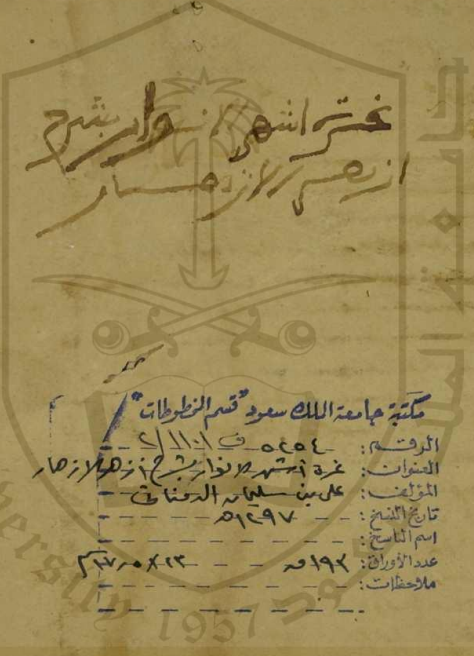 غرة اشهى الانوار بشرح
ازهر الازهار
مكتبة جامعة الملك سعود "قسم المخطوطات"
الرقم: ٥٤٥٤ ف ١١٠١/٢
العنوان: غرة أشهر الانوار بشرح أزهر الازهار
المؤلف: علي بن سليمان الدمناتي
تاريخ النسخ: ١٢٩٧هـ
اسم الناسخ:
عدد الأوراق: ١٩٣ ق
ملاحظات:
1957